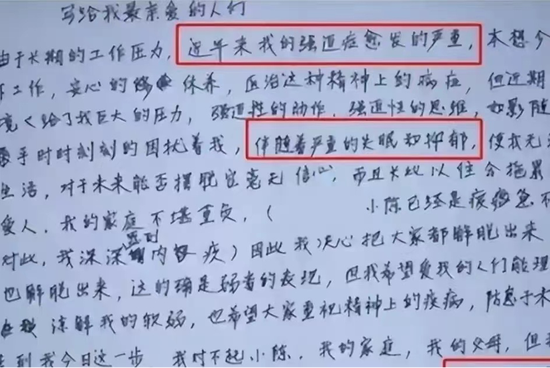 写给我最亲爱的人们
由于长期的工作压力，近年来我的强迫症愈发的严重，本想今
工作，安心的 休养，医治这种精神上的病症，但近期
境 给了我巨大的压力，强迫性的动作，强迫性的思维，如影随
时时刻刻的困扰着我，伴随着严重的失眠和抑郁，使我无
生活，对于未来能否摆脱它毫无信心，而且长此以往会拖累
爱人，我的家庭不堪重负，（ 小陈已经是疲惫
对此，我深深 内疚）因此我决心把大家都解脱出来
也解脱出来，这的确是弱者的表现，但我希望爱我的人们能理
谅解我的软弱，也希望大家重视精神上的疾病，防患于未
走到我今日这一步 我对不起小陈，我的家庭，我的父母，但